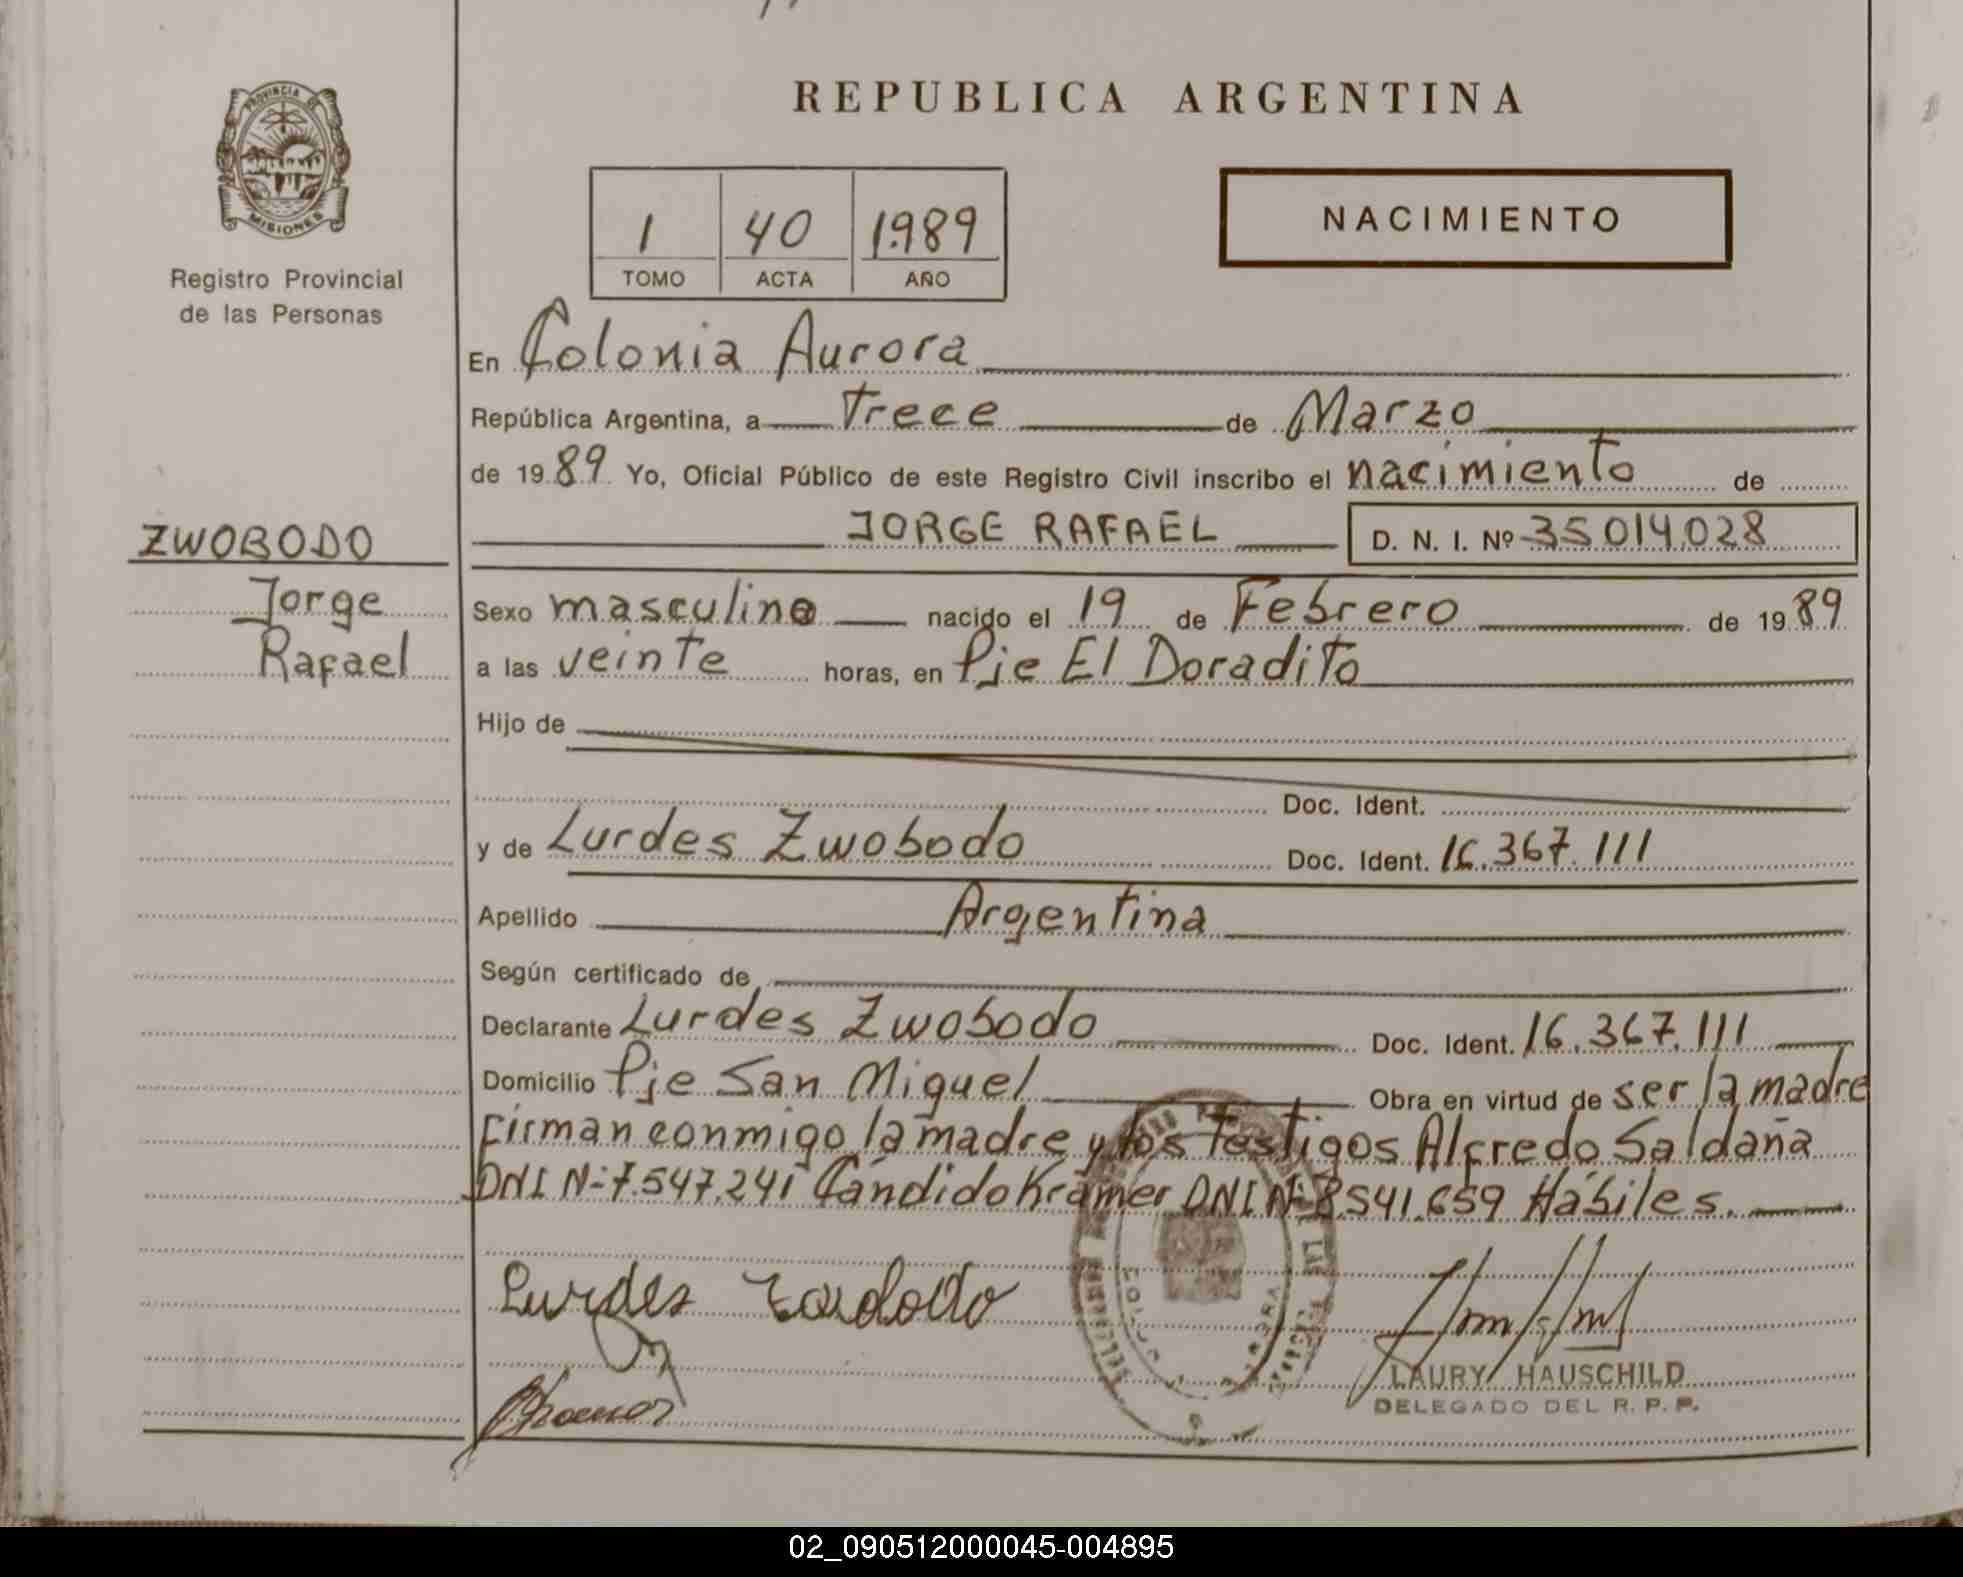 REPUBLICA ARGENTINA
PROVINCIA DE
MISIONES
Registro Provincial
de las Personas
1 40 1989
TOMO ACTA AÑO
NACIMIENTO
En Colonia Aurora
República Argentina, a Trece de Marzo
de 19 89 Yo, Oficial Público de este Registro Civil inscribo el nacimiento de
ZWOBODO
Jorge
Rafael
JORGE RAFAEL D. N. I. Nº 35 014.028
Sexo masculino nacido el 19 de Febrero de 19 89
a las veinte horas, en Pje El Doradito
Hijo de
Doc. Ident.
y de Lurdes Zwobodo Doc. Ident. 16.367.111
Apellido Argentina
Según certificado de
Declarante Lurdes Zwobodo Doc. Ident. 16.367.111
Domicilio Pje San Miguel Obra en virtud de ser la madre
Firman conmigo la madre y los Testigos Alfredo Saldaña
DNI N- 7.547.241 Cándido Kramer DNI N- 8.541.659 Hábiles.
Lurdes
LAURY HAUSCHILD
DELEGADO DEL R. P. P.
02_090512000045-004895